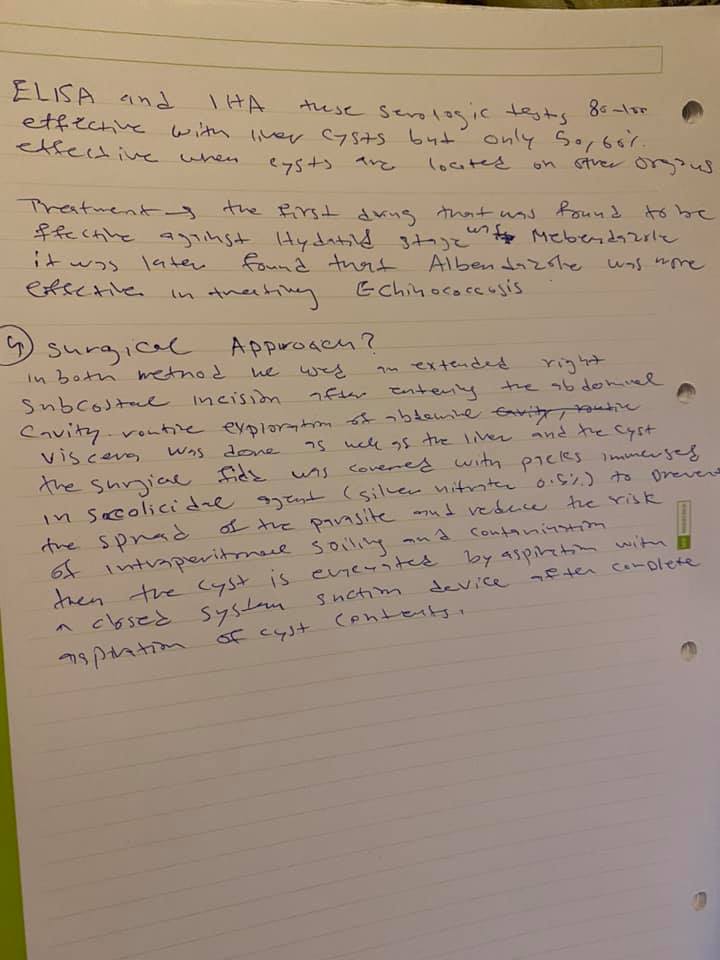 ELISA and IHA these serologic tests 80-100
effective with liver cysts but only 50,60%.
effective when cysts are located on other organs
Treatment → the first drug that was found to be
ffective against Hydatid stage was Mebendazole
it was later found that Albendazole was more
effective in treating Echinococcosis
4) surgical Approach?
in both method we used an extended right
subcostal incision after entering the abdominal
cavity routine exploration of abdomine cavity, routine
viscera was done as well as the liver and the cyst
the surgical fild was covered with packs immersed
in scolicidal agent (silver nitrate 0.5%) to prevent
the spread of the parasite and reduce the risk
of intraperitoneal soiling and contamination
then the cyst is evacuated by aspiration with
a closed system suction device after complete
aspiration of cyst contents.